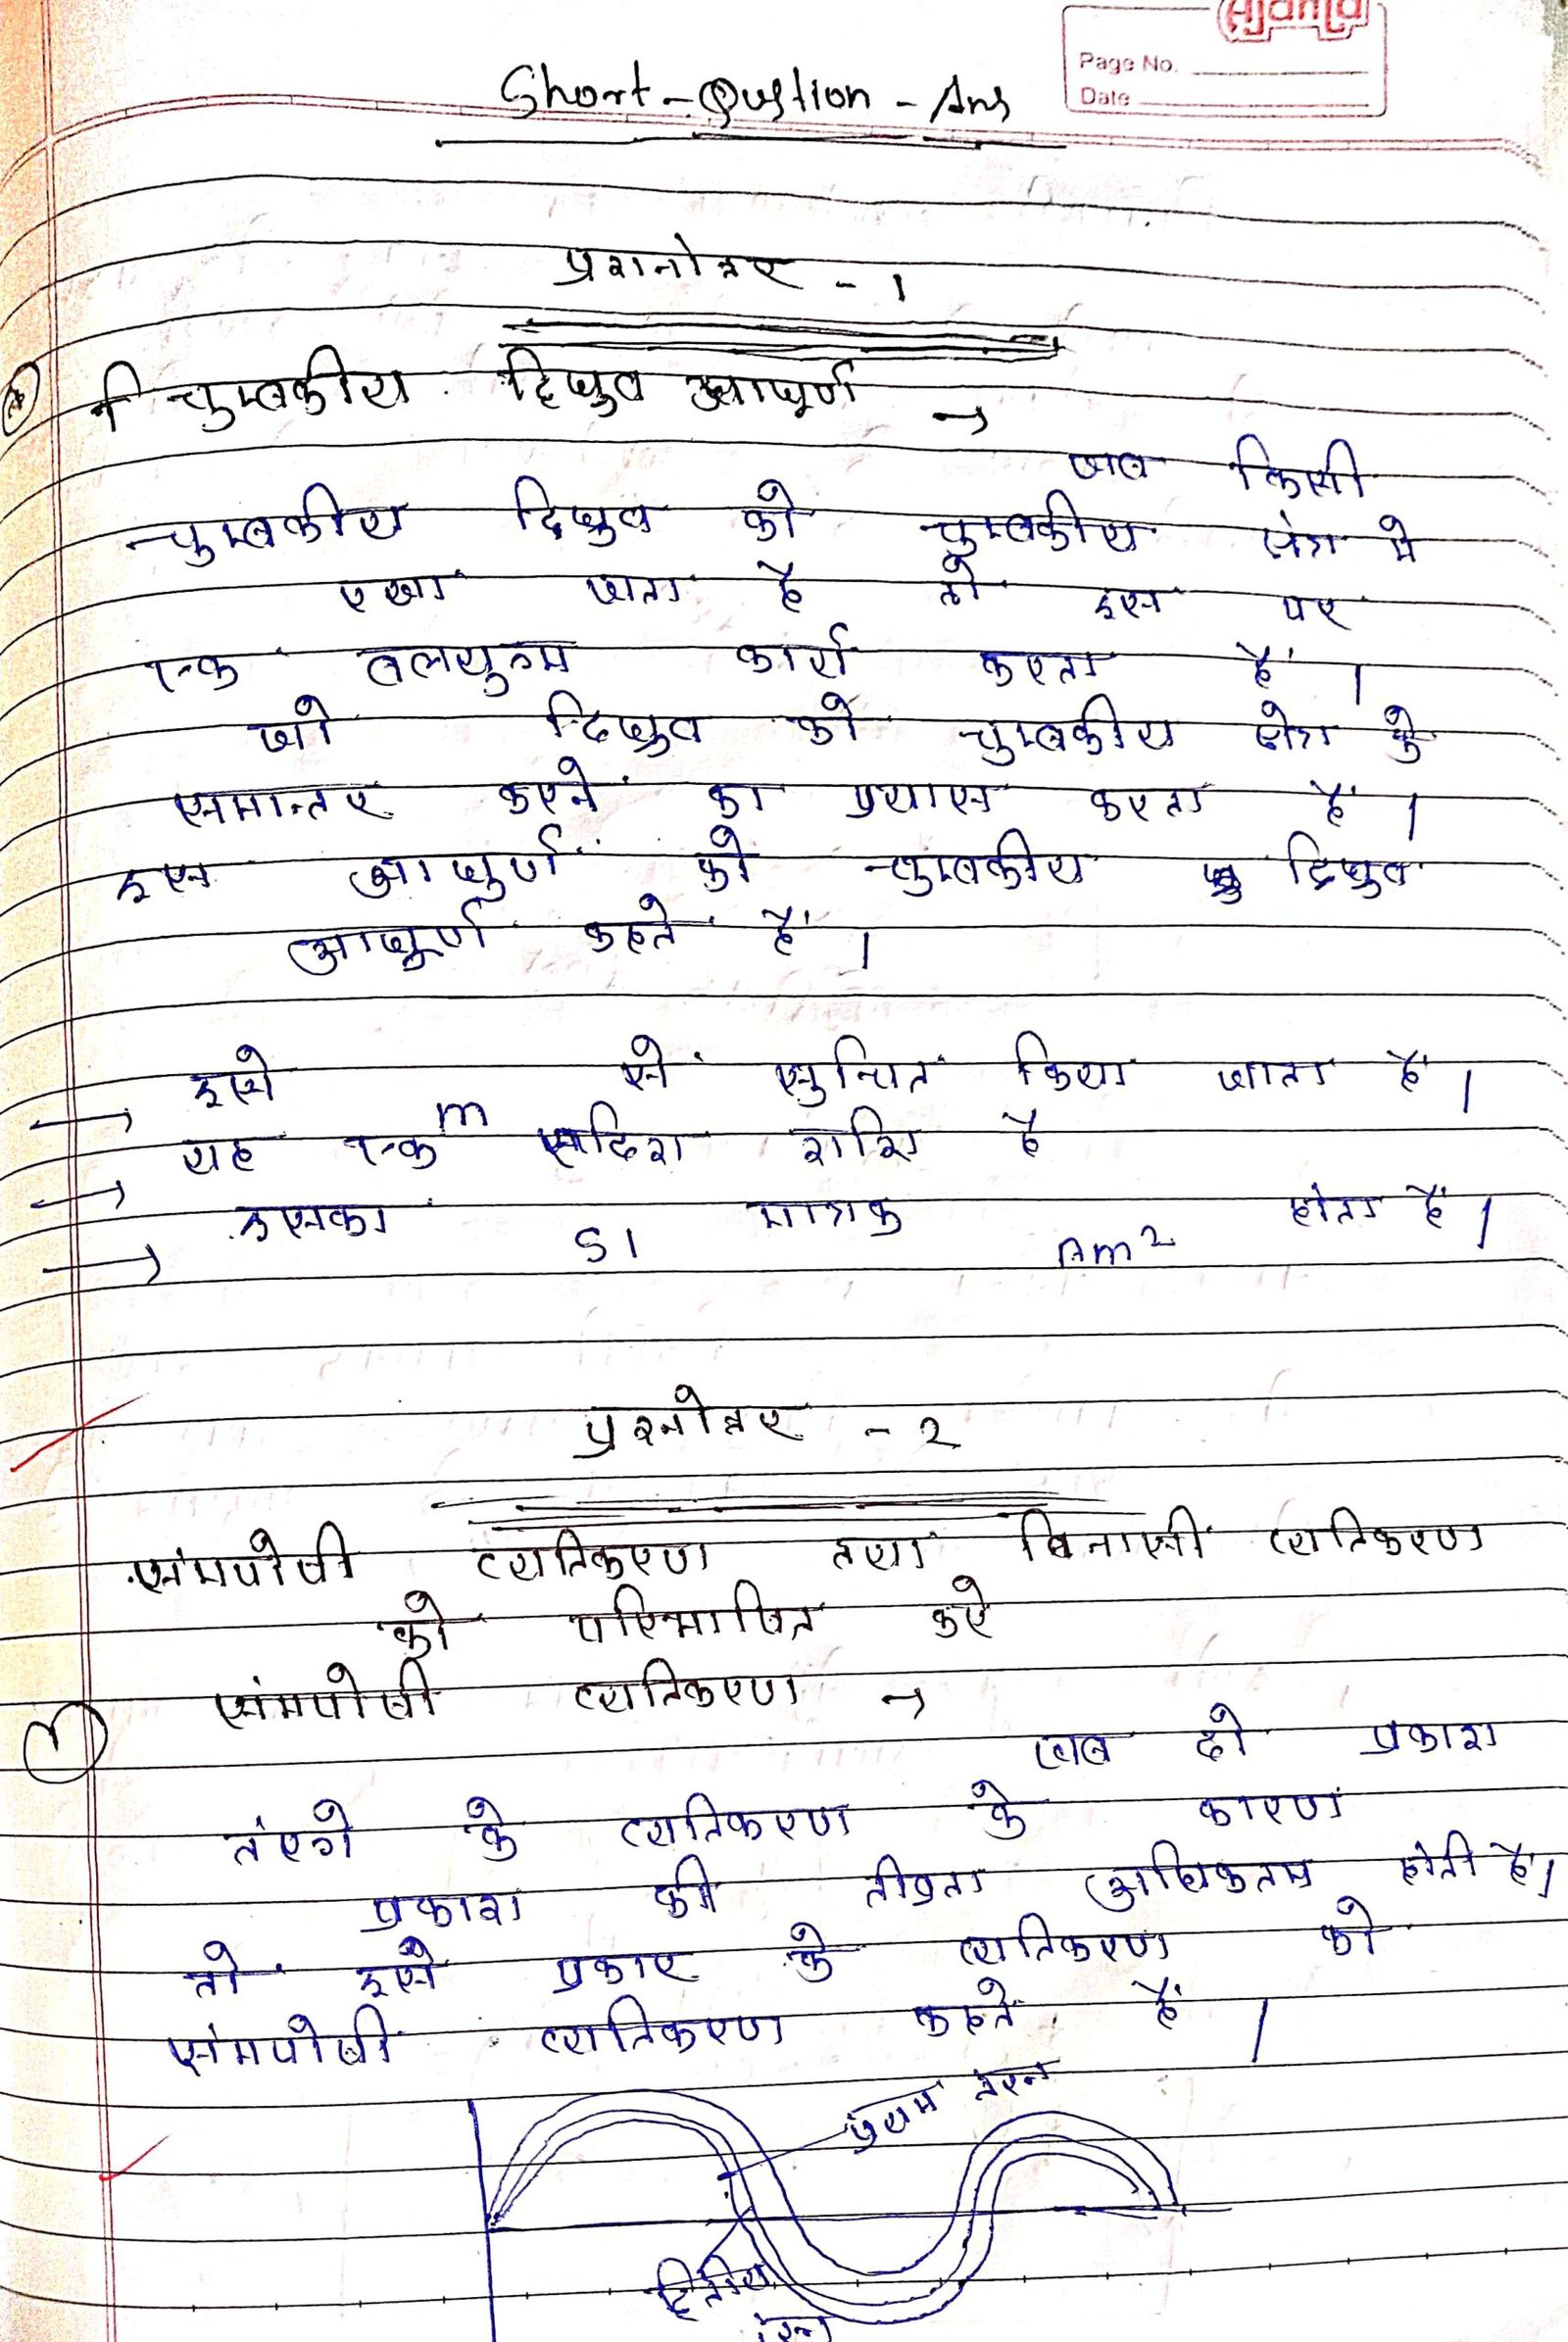 Ajanta
Page No.
Date
Short-Qustion-Ans
प्रशनोत्तर - 1
चुम्बकीय द्विध्रुव आघूर्ण →
जब किसी
चुम्बकीय दिध्रुव को चुम्बकीय क्षेत्र मे
रखा जाता है तो इस पर
एक बलयुग्म कार्य करता हैं।
जो दिध्रुव को चुम्बकीय क्षेत्र के
समान्तर करने का प्रयास करता हैं।
इस आघुर्ण को चुम्बकीय द्विध्रुव
आघूर्ण कहते हैं।
→ इसे m से सुचित किया जाता हैं।
→ यह एक सदिश राशि है
→ इसका SI मात्रक Am² होता हैं।
प्रश्नोत्तर - 2
संमपोषी व्यतिकरण तथा विनासी व्यतिकरण
को परिभाषित करे
संमपोषी व्यतिकरण →
जब दो प्रकाश
तंरगे के व्यतिकरण के कारण
प्रकाश की तीव्रता अधिकतम होती हैं।
तो इसे प्रकार के व्यतिकरण को
संमपोषी व्यतिकरण कहते हैं।
प्रथम तरग
द्वितीय